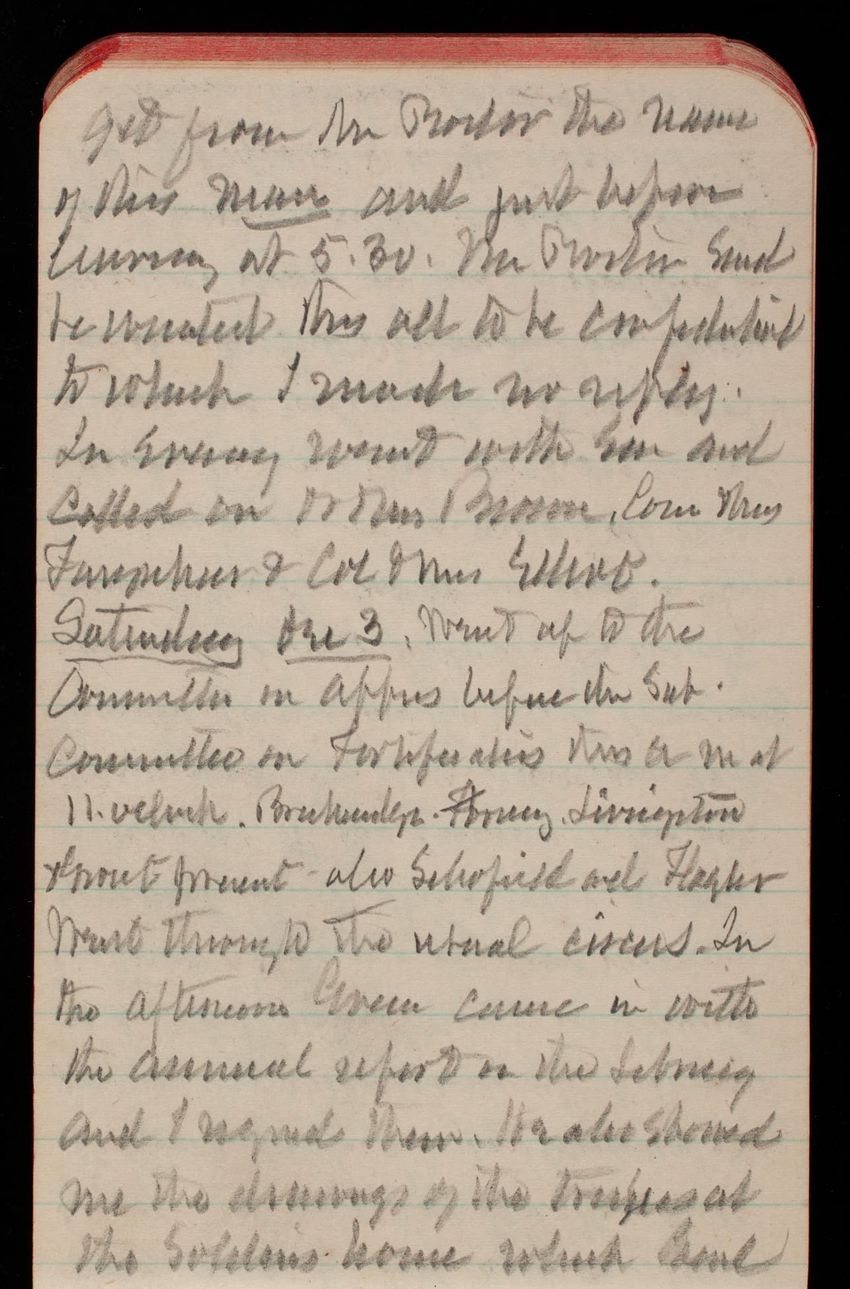 get from Mr Proctor the name
of this man and just before
leaving at 5.30. Mr Proctor said
he wanted this all to be confidential
to which I made no reply.
In Evening went with Em and
Called on Dr & Mrs Brown, Com & Mrs
Farquhar & Col & Mrs Elliot.
Saturday Dec 3, Went up to the
Committee on Apprs before the Sub.
Committee on Fortifications this a m at
11. oclock. Breckenridge. Forney. Livingston
present also Schofield and Flagler
Went through the usual circus. In
the afternoon Green came in with
the annual report on the Library
and I signed them. He also showed
me the drawings of the at
the Soldiers home which